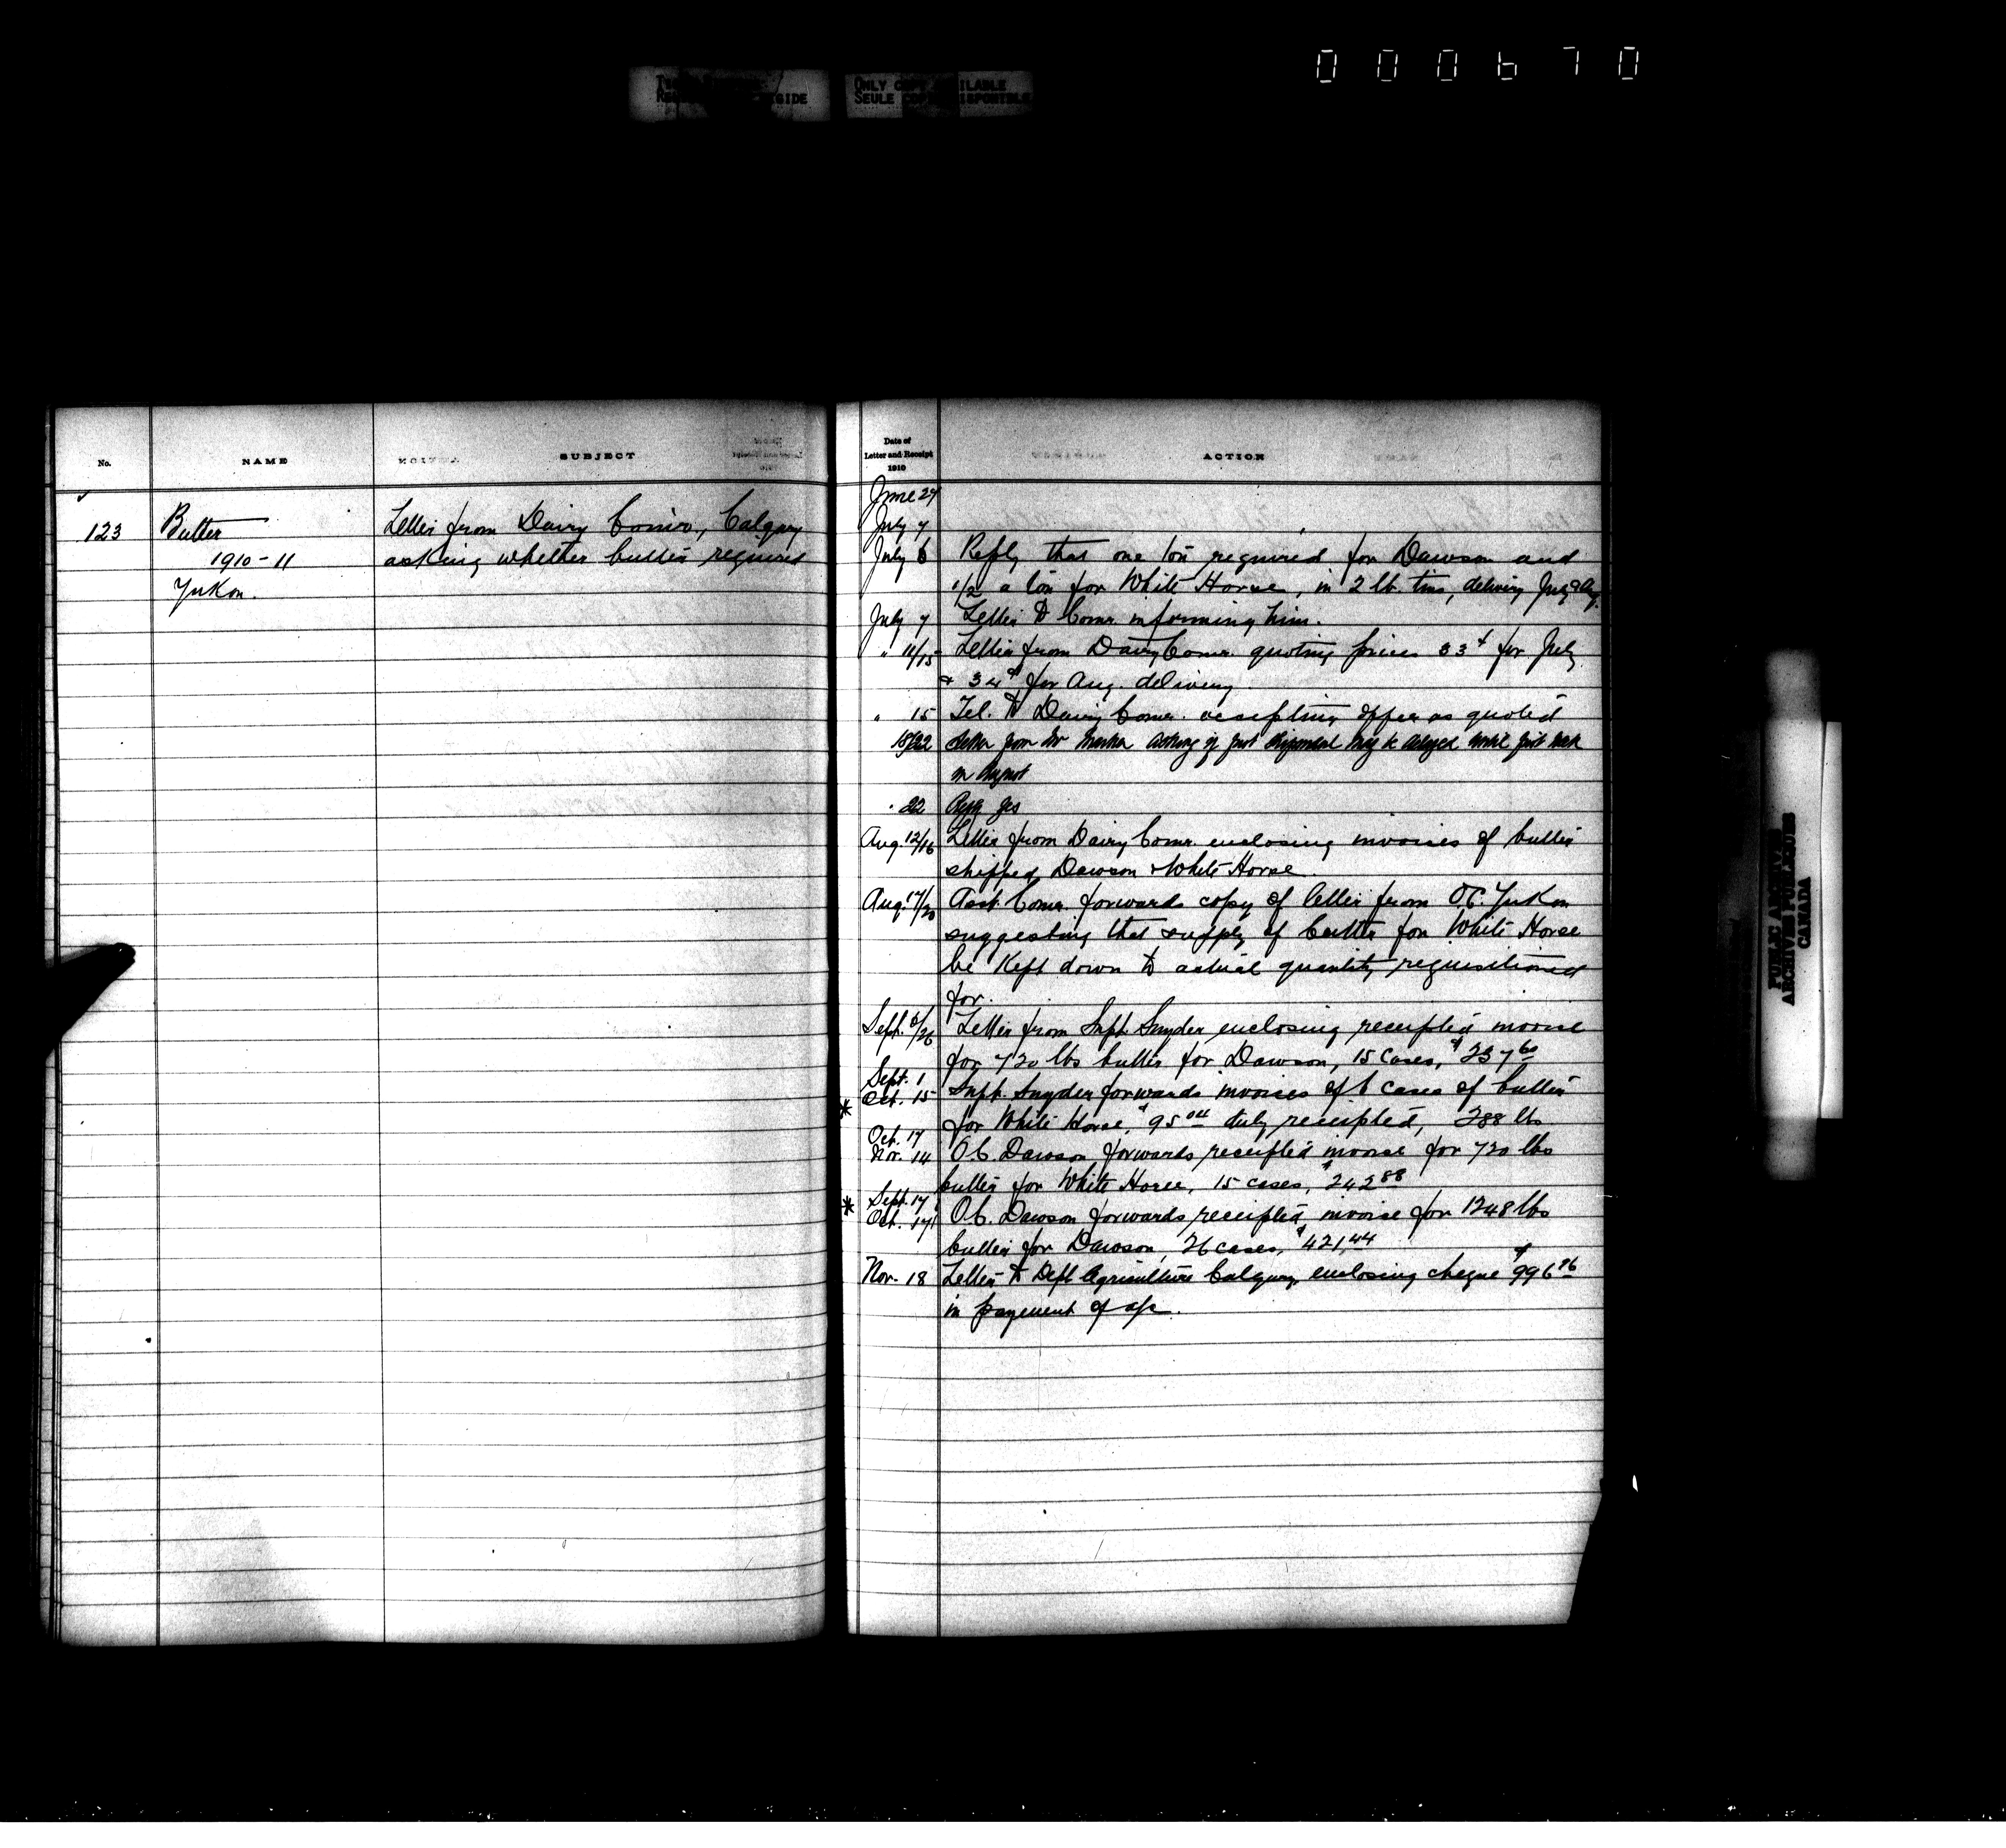 000670
ONLY COPY AVAILABLE
SEULE COPIE DISPONIBLE
No.
NAME
SUBJECT
Date of
Letter and Receipt
1910
ACTION
123
Butter
1910-11
Yukon.
Letter from Dairy Comr., Calgary
asking whether butter required
June 27
July 7
July 6 Reply that one ton required for Dawson and
1/2 a ton for White Horse, in 2 lb. tins, delivery July & Aug.
July 7 Letter to Comr. informing him.
" 11/15 Letter from Dairy Comr. quoting prices 33¢ for July
& 34¢ for Aug. delivery
" 15 Tel. to Dairy Comr. accepting offer as quoted
18/22 Letter from Mr Marker asking if first shipment may be delayed until first week
in August
" 22 Reply yes
Aug. 12/16 Letter from Dairy Comr. enclosing invoices of butter
shipped Dawson & White Horse
Aug. 17/20 Asst. Comr. forwards copy of letter from O.C. Yukon
suggesting that supply of butter for White Horse
be kept down to actual quantity requisitioned
for.
Sept. 6/26 Letter from Supt. Snyder enclosing receipted invoice
for 720 lbs butter for Dawson, 15 cases, $237.60
Sept. 1
* Oct. 15 Supt. Snyder forwards invoices of 6 cases of butter
for White Horse, $95.04 duly receipted, 288 lbs
Oct. 17
Nov. 14 O.C. Dawson forwards receipted invoice for 720 lbs
butter for White Horse, 15 cases, $242.88
Sept. 17
* Oct. 17 O.C. Dawson forwards receipted invoice for 1248 lbs
butter for Dawson, 26 cases, $421.44
Nov. 18 Letter to Dept Agriculture Calgary, enclosing cheque $996.96
in payment of a/c.
PUBLIC ARCHIVES
ARCHIVES PUBLIQUES
CANADA